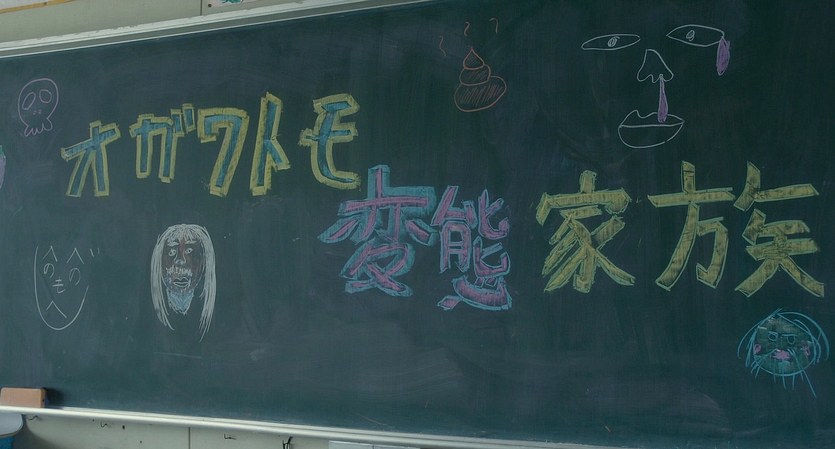 オガワトモ
変態家族
へのへの
もへ